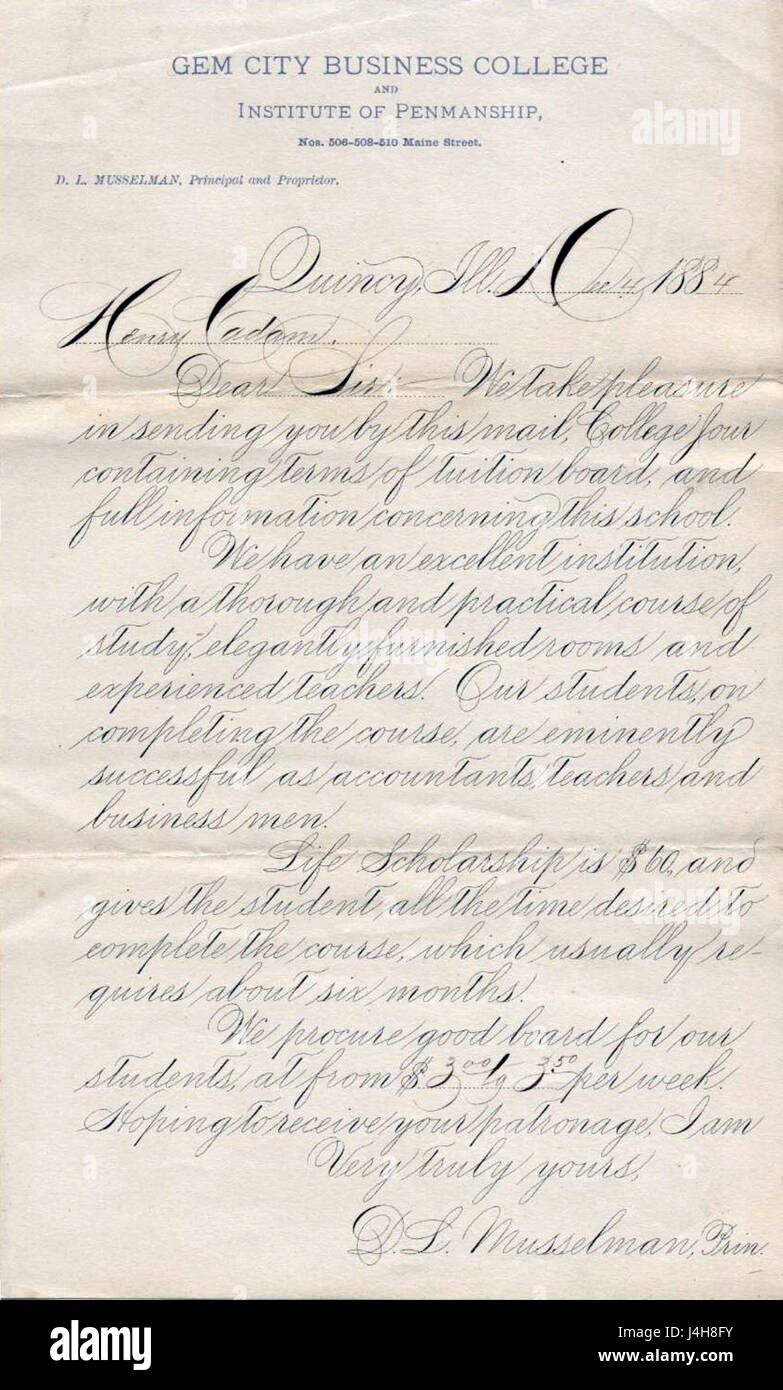 GEM CITY BUSINESS COLLEGE
AND
INSTITUTE OF PENMANSHIP,
Nos. 506-508-510 Maine Street.
D. L. MUSSELMAN, Principal and Proprietor.
Quincy, Ill. Dec 4, 1884
Henry Cadam.
Dear Sir We take pleasure
in sending you by this mail, College Jour
containing terms of tuition board, and
full information concerning this school.
We have an excellent institution,
with a thorough and practical course of
study, elegantly furnished rooms and
experienced teachers. Our students, on
completing the course, are eminently
successful as accountants, teachers and
business men.
Life Scholarship is $60, and
gives the student all the time desired to
complete the course, which usually re-
quires about six months.
We procure good board for our
students, at from $3.00 to 3.50 per week.
Hoping to receive your patronage, I am
Very truly yours,
D. L. Musselman, Prin.
alamy stock photo
alamy
Image ID: J4H8FY
www.alamy.com